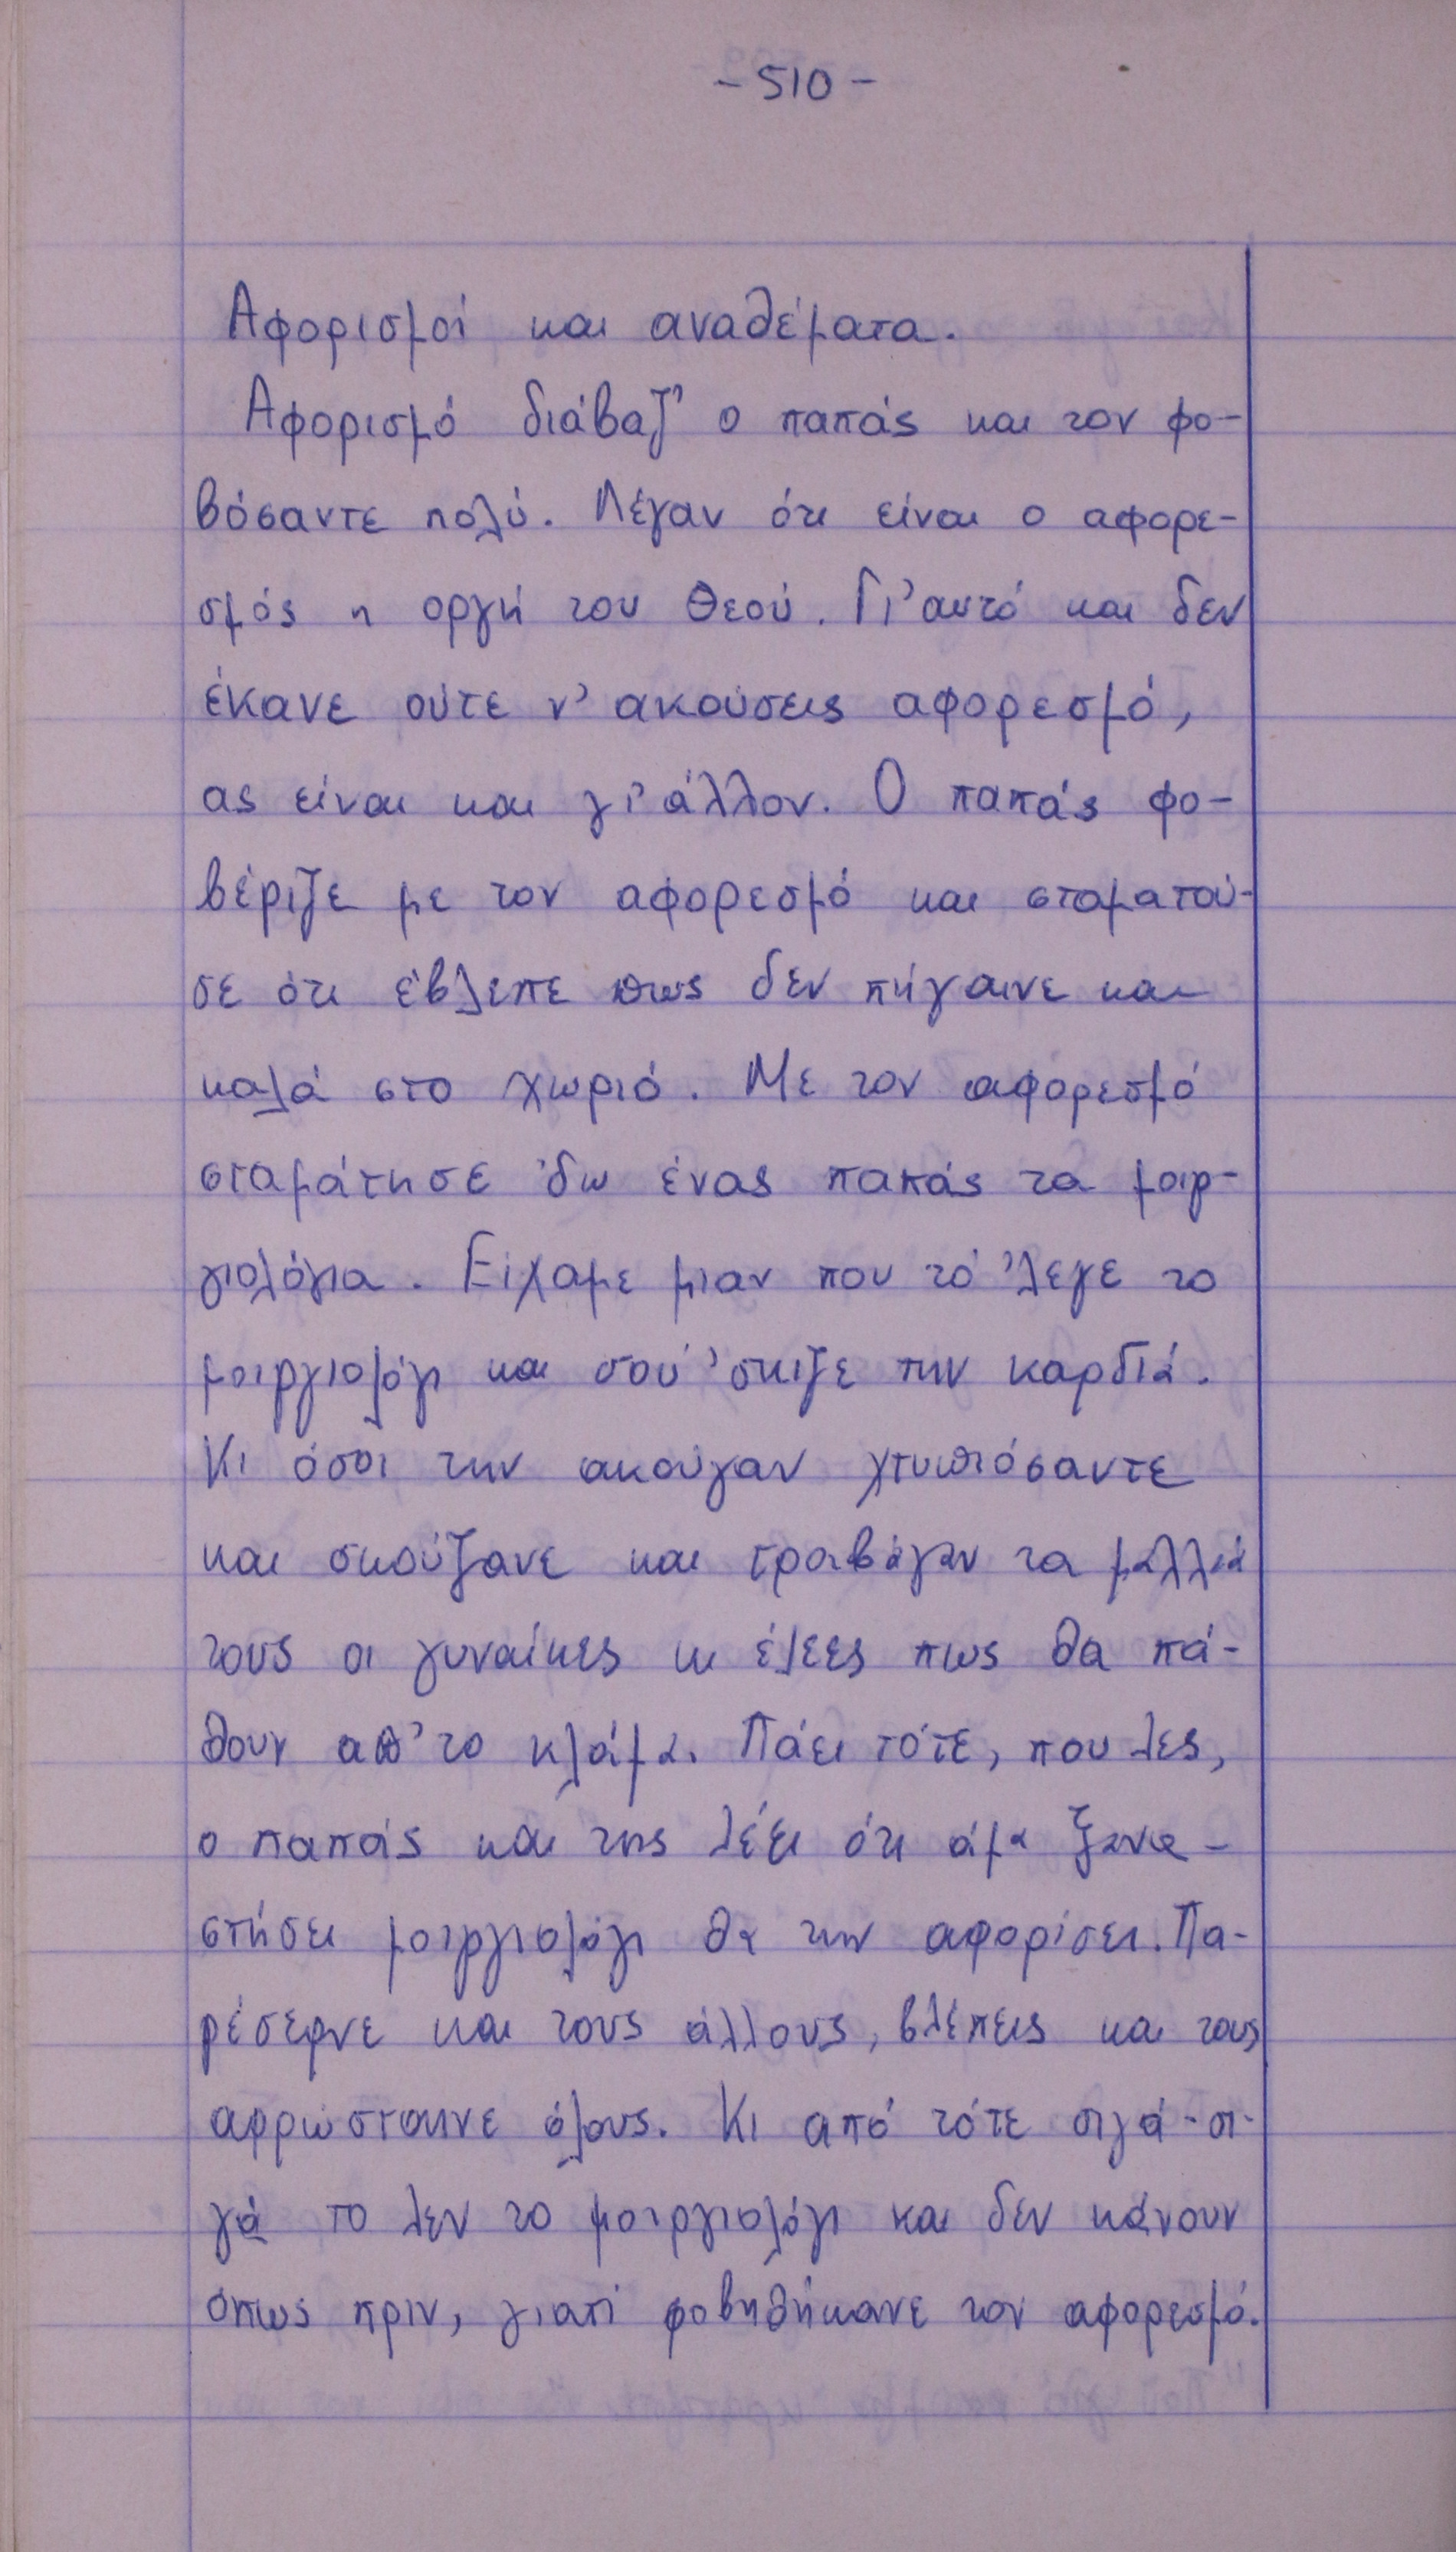 - 510 -
Αφορισμοί και αναθέματα.
Αφορισμό διάβαζ' ο παπάς και τον φο-
βόσαντε πολύ. Λέγαν ότι είναι ο αφορε-
σμός η οργή του Θεού. Γι' αυτό και δεν
έκανε ούτε ν' ακούσεις αφορεσμό,
ας είναι και γι' άλλον. Ο παπάς φο-
βέριζε με τον αφορεσμό και σταματού-
σε ότι έβλεπε πως δεν πήγαινε και
καλά στο χωριό. Με τον αφορεσμό
σταμάτησε 'δω ένας παπάς τα μοιρ-
γιολόγια. Είχαμε μιαν που τό 'λεγε το
μοιργιολόγι και σού 'σκιζε την καρδιά.
Κι όσοι την ακούγαν χτυπιόσαντε
και σκούζανε και τραβάγαν τα μαλλιά
τους οι γυναίκες κι έλεες πως θα πά-
θουν απ' το κλάμα. Πάει τότε, που λες,
ο παπάς και της λέει ότι άμα ξανα-
στήσει μοιργιολόγι θα την αφορίσει. Πα-
ρέσερνε και τους άλλους, βλέπεις και τους
αρρώσταινε όλους. Κι από τότε σιγά-σι-
γά το λεν το μοιργιολόγι και δεν κάνουν
όπως πριν, γιατί φοβηθήκανε τον αφορεσμό.